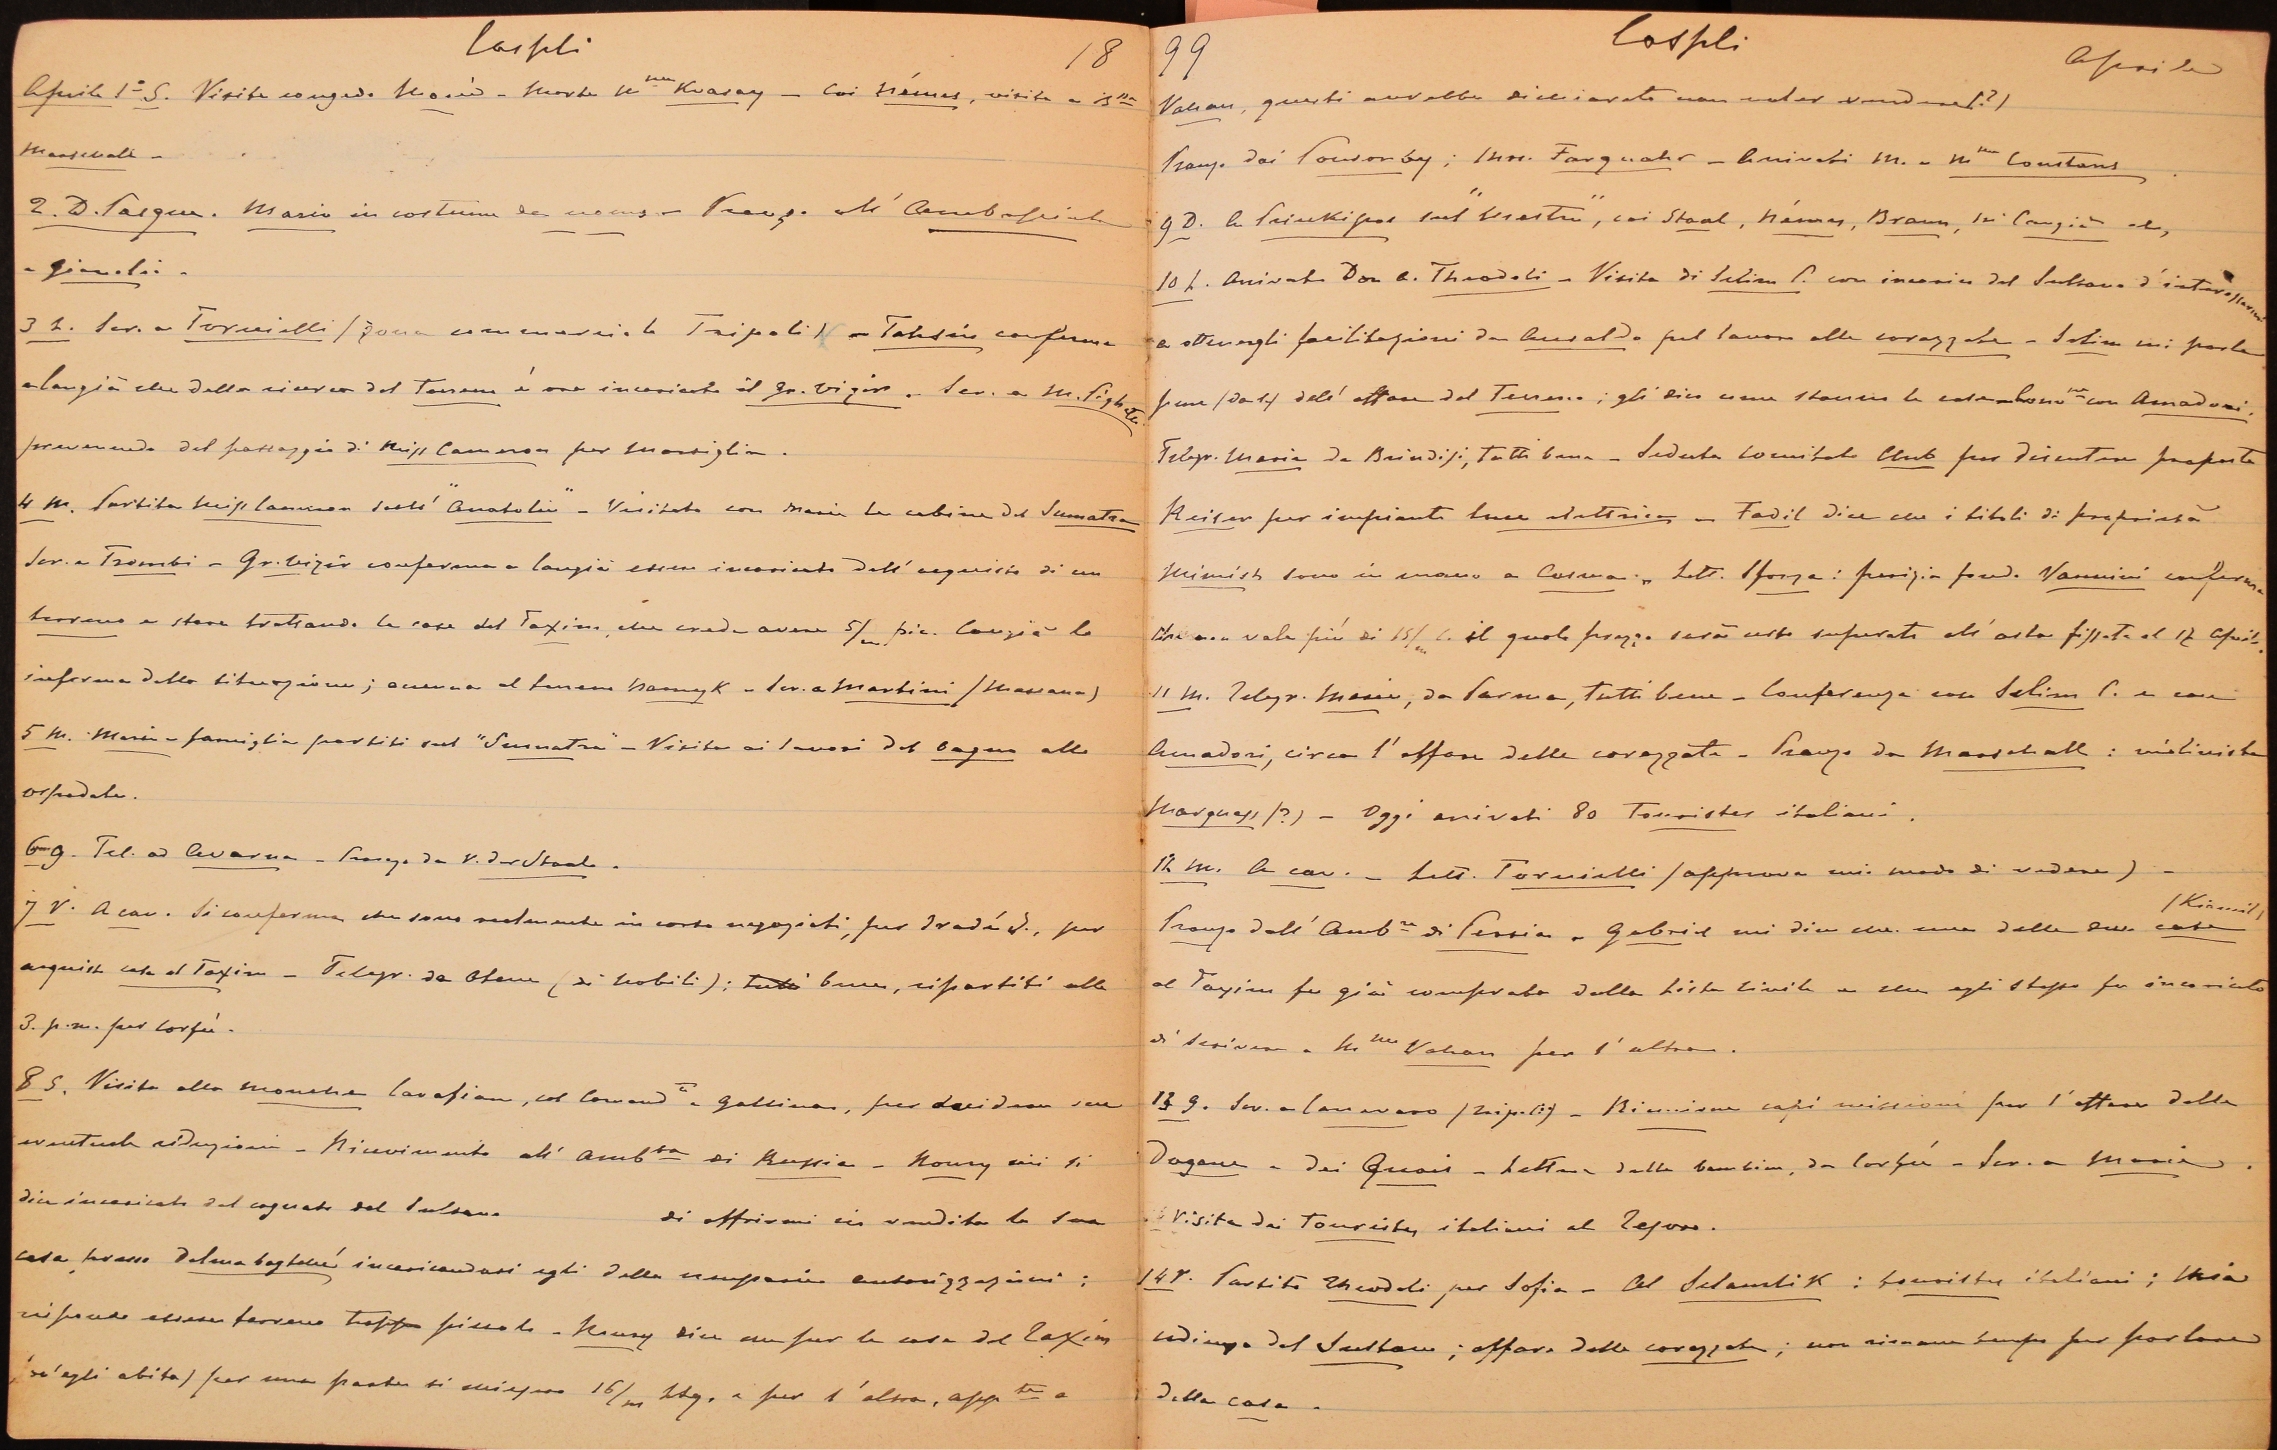 Cospli 18
Aprile 1º S. Visita congedo - Morte Mme Kvassay - Coi Némes, visita a Bne
Marschall -
2. D. Pasqua. Mario in costume da - Pranzo all' Ambasciata
e giuochi -
3 L. Scr. a Tornielli (zona commerciale Tripoli) - Tahsin conferma
a Cangià che della ricerca del terreno è ora incaricato il Gr. Vizir - Scr. a M.
prevenendo del passaggio di Miss Cameron per Marsiglia.
4 M. Partita Miss Cameron sull' "Anatolie" - Visitato con Maria le cabine del Sumatra
Scr. a Trombi - Gr. Vizir conferma a Cangià essere incaricato dell' acquisto di un
terreno e stare trattando le case del Taxim, che crede avere 5/m pic. Cangià lo
informa della situazione; accenna al terreno - Scr. a Martini (Massaua)
5 M. Maria e famiglia partiti sul "Sumatra" - Visita ai lavori del bagno allo
ospedale.
6 g. Tel. ad Avarna - Pranzo da v. der Staal.
7 V. A cav. Si conferma che sono realmente in corso negoziati, per Iradé, per
acquisto case al Taxim - Telegr. da Atene (di Nobili); tutti bene, ripartiti alle
3. p.m. per Corfù.
8 S. Visita alla mouche Cavafian, col Comandte e Gallinar, per decidere sue
eventuali riduzioni - Ricevimento all' Ambta di Russia - Noury mi si
dice incaricato dal cognato del Sultano di offrirmi in vendita la sua
casa presso Dolmabagtché incaricandosi egli delle necessarie autorizzazioni;
rispondo essere terreno troppo piccolo - Noury dice che per le case del Taxim
(ov'egli abita) per una parte si esigono 16/m Ltq. e per l'altra, appte a
99 Cospli Aprile
Vahan, questi avrebbe dichiarato non voler vendere (?)
Pranzo dai Ponsonby; Mrs. Farquahr - Arrivati M. e Mme Constans
9 D. A Prinkipos sul "Mestre", coi Staal, Némes, Braun, Cangià etc,
10 L. Arrivato Don A. Theodoli - Visita di Selim P. con incarico del Sultano d'interessarmi
a ottenergli facilitazioni da Ansaldo pel lavoro alle corazzate - Selim mi parla
pure (da sè) dell' affare del Terreno; gli dico come stanno le cose con Amadori.
Telegr. Maria da Brindisi, tutti bene - Seduta Comitato Club per discutere proposta
Reiser per impianto luce elettrica - Fadil dice che i titoli di proprietà
sono in mano a Cosma - Lett. Sforza: perizia fondo Vannini conferma
che non vale più di 15/m L. il quale prezzo sarà certo superato all' asta fissata al 17 Aprile.
11 M. Telegr. Maria, da Parma, tutti bene - Conferenza con Selim P. e con
Amadori, circa l'affare delle corazzate - Pranzo da Marschall: violinista
Marquess (?) - Oggi arrivati 80 Touristes italiani.
12 M. A cav. - Lett. Tornielli (approva mio modo di vedere) -
Pranzo dall' Ambre di Persia - Gabriel mi dice che una delle due case (Kiamil)
al Taxim fu già comprata dalla Lista Civile e che egli stesso fu incaricato
di scrivere a Mme Vahan per l'altra.
13 g. Scr. a Canevaro (Tripoli) - Riunione capi missioni per l'affare delle
Dogane e dei Quais - Lettera delle bambine, da Corfù - Scr. a Maria.
Visita dei Touristes italiani al Tesoro.
14 V. Partito Theodoli per Sofia - Al Selamlik: touristes italiani; mia
udienza dal Sultano; affare delle corazzate; non rimane tempo per parlare
della casa.